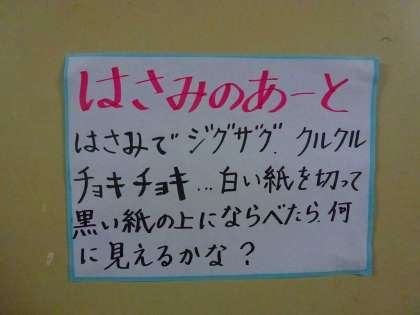 はさみのあーと
はさみで ジグザグ. クルクル
チョキ チョキ...白い紙を切って
黒い紙の上にならべたら.何
に見えるかな?